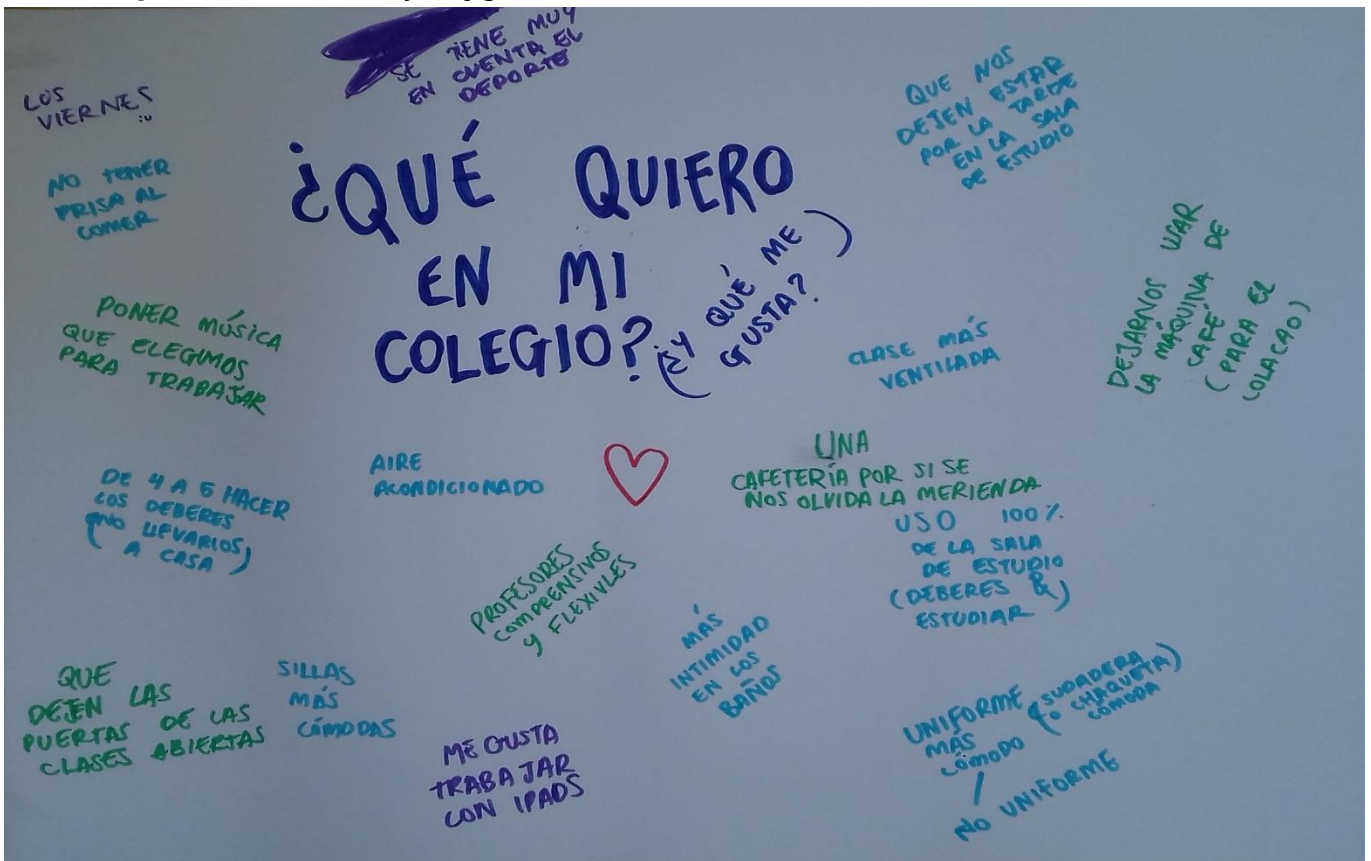 SE TIENE MUY
EN CUENTA EL
DEPORTE
LOS
VIERNES
QUE NOS
DEJEN ESTAR
POR LA TARDE
EN LA SALA
DE ESTUDIO
NO TENER
PRISA AL
COMER
¿QUÉ QUIERO
EN MI
COLEGIO?
(¿Y QUÉ ME
GUSTA?)
DEJARNOS USAR
LA MÁQUINA DE
CAFÉ
(PARA EL
COLACAO)
PONER MÚSICA
QUE ELEGIMOS
PARA TRABAJAR
CLASE MÁS
VENTILADA
AIRE
ACONDICIONADO
UNA
CAFETERÍA POR SI SE
NOS OLVIDA LA MERIENDA
DE 4 A 5 HACER
LOS DEBERES
(NO LLEVARLOS
A CASA)
USO 100%
DE LA SALA
DE ESTUDIO
(DEBERES &
ESTUDIAR)
PROFESORES
COMPRENSIVOS
Y FLEXIVLES
MÁS
INTIMIDAD
EN LOS
BAÑOS
QUE
DEJEN LAS
PUERTAS DE LAS
CLASES ABIERTAS
SILLAS
MÁS
CÓMODAS
ME GUSTA
TRABAJAR
CON IPADS
UNIFORME
MÁS
CÓMODO
(SUDADERA
O CHAQUETA)
CÓMODA
NO UNIFORME